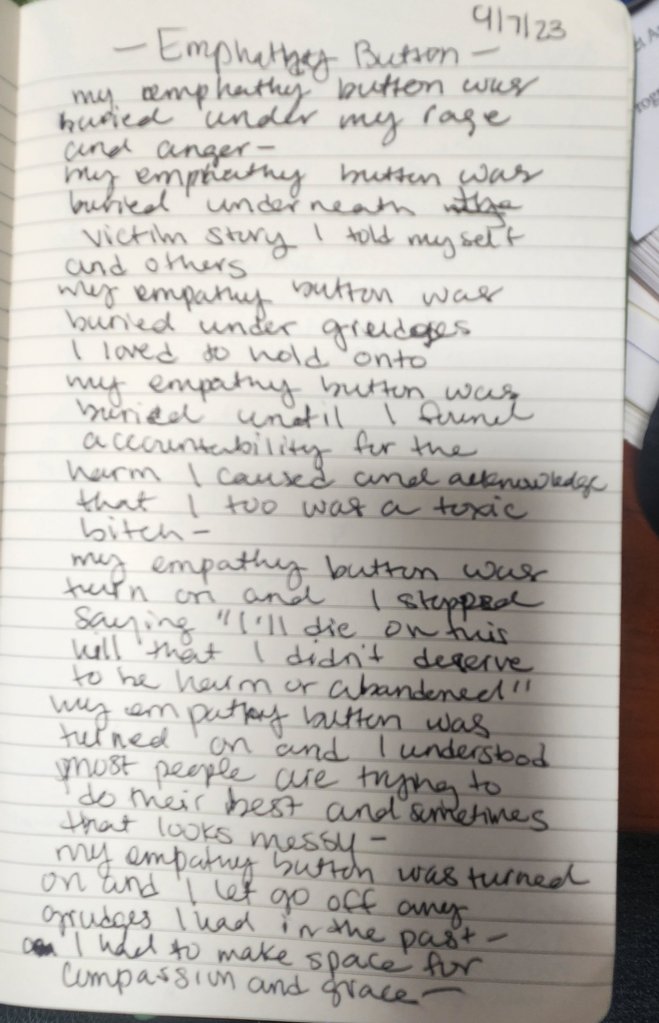 4/7/23
— Emphathy Button —
my emphathy button was
buried under my rage
and anger –
my emphathy button was
buried underneath the
victim story I told myself
and others
my empathy button was
buried under grudges
I loved to hold onto
my empathy button was
buried until I found
accountability for the
harm I caused and acknowledge
that I too was a toxic
bitch –
my empathy button was
turn on and I stopped
saying "I'll die on this
hill that I didn't deserve
to be harm or abandened"
my empathy button was
turned on and I understood
most people are trying to
do their best and sometimes
that looks messy –
my empathy button was turned
on and I let go off any
grudges I had in the past –
I had to make space for
compassion and grace —